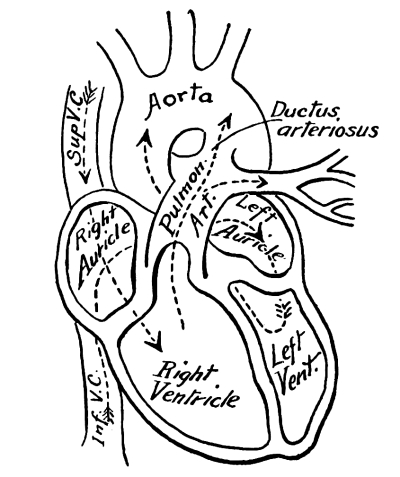 Aorta
Sup V.C.
Ductus
arteriosus
Pulmon.
Art
Right
Auricle
Left
Auricle
Right
Ventricle
Left
Vent.
Inf. V.C.